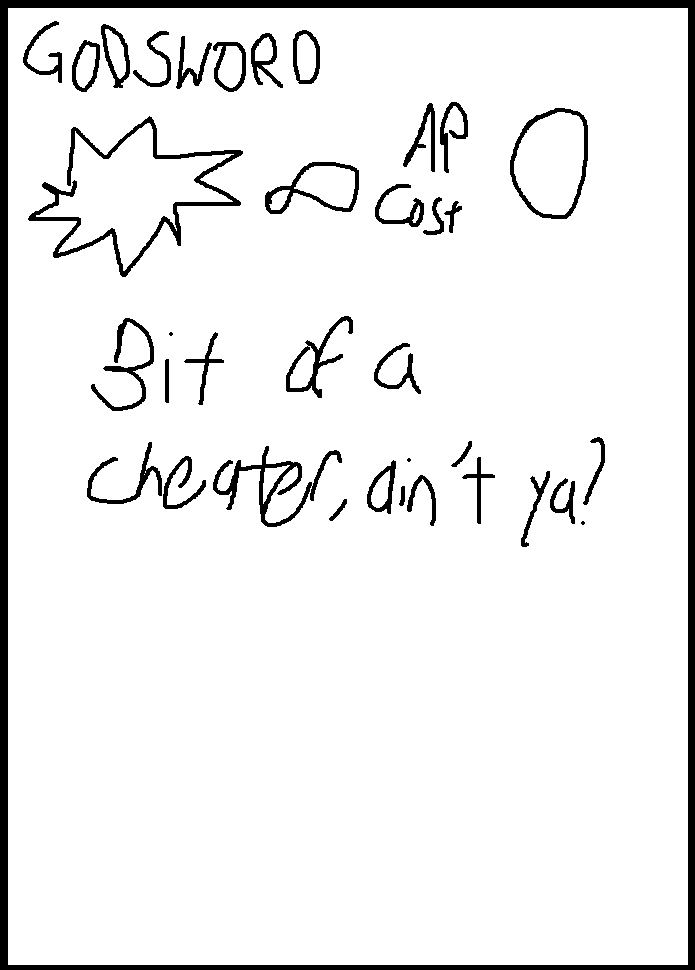 GODSWORD
∞ AP Cost 0
Bit of a
cheater, ain't ya?